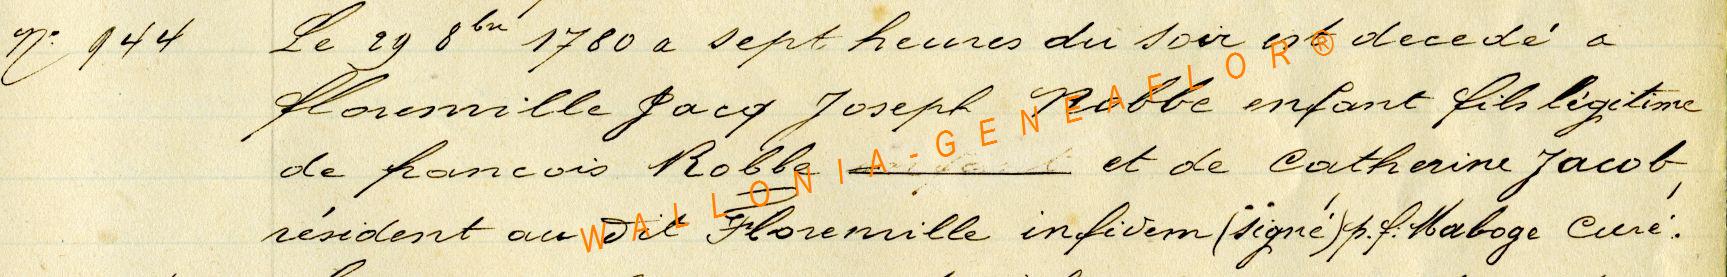 N° 944 Le 29 8bre 1780 a sept heures du soir est decedé a
florenville Jacq Joseph Robbe enfant fils légitime
de francois Robbe et de Catherine Jacob,
résident au dit Florenville infidem (signé) p. f. Maboge Curé.
WALLONIA-GENEAFLOR®